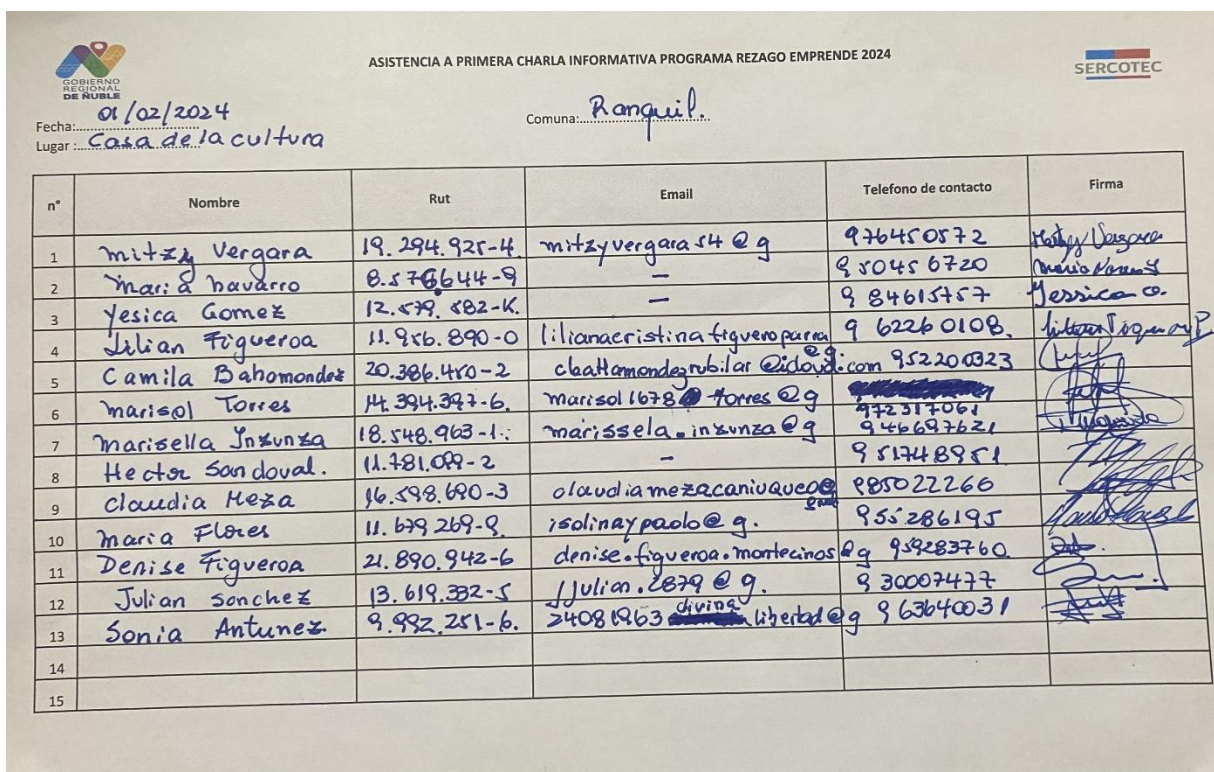 ASISTENCIA A PRIMERA CHARLA INFORMATIVA PROGRAMA REZAGO EMPRENDE 2024
GOBIERNO
REGIONAL
DE ÑUBLE
SERCOTEC
Fecha: 01/02/2024
Comuna: Ranquil.
Lugar: Casa de la cultura
n° Nombre Rut Email Telefono de contacto Firma
1 mitzy Vergara 19.294.925-4 mitzyvergara54@g 976450572
2 maria navarro 8.576644-9 — 950456720
3 Yesica Gomez 12.579.582-K. — 984615757 Yessica G.
4 Lilian Figueroa 11.956.890-0 lilianacristinafigueroparra@g 9 62260108.
5 Camila Bahomondez 20.386.450-2 @icloud.com 952200323
6 marisol Torres 14.394.397-6. marisol1678torres@g 972317061
7 Marisella Inzunza 18.548.963-1. marissela.inzunza@g 946697621
8 Hector Sandoval. 11.781.099-2 — 951748951
9 Claudia Meza 16.598.690-3 claudiamezacaniuqueo@ 985022266
10 maria Flores 11.679.269-9. isolinaypaolo@g. 955286195
11 Denise Figueroa 21.890.942-6 denise.figueroa.montecinos@g 959283760
12 Julian Sanchez 13.619.332-5 jjulian.2879@g. 9 30007477
13 Sonia Antunez 9.992.251-6. 24081963divinalibertad@g 9 63640031
14
15